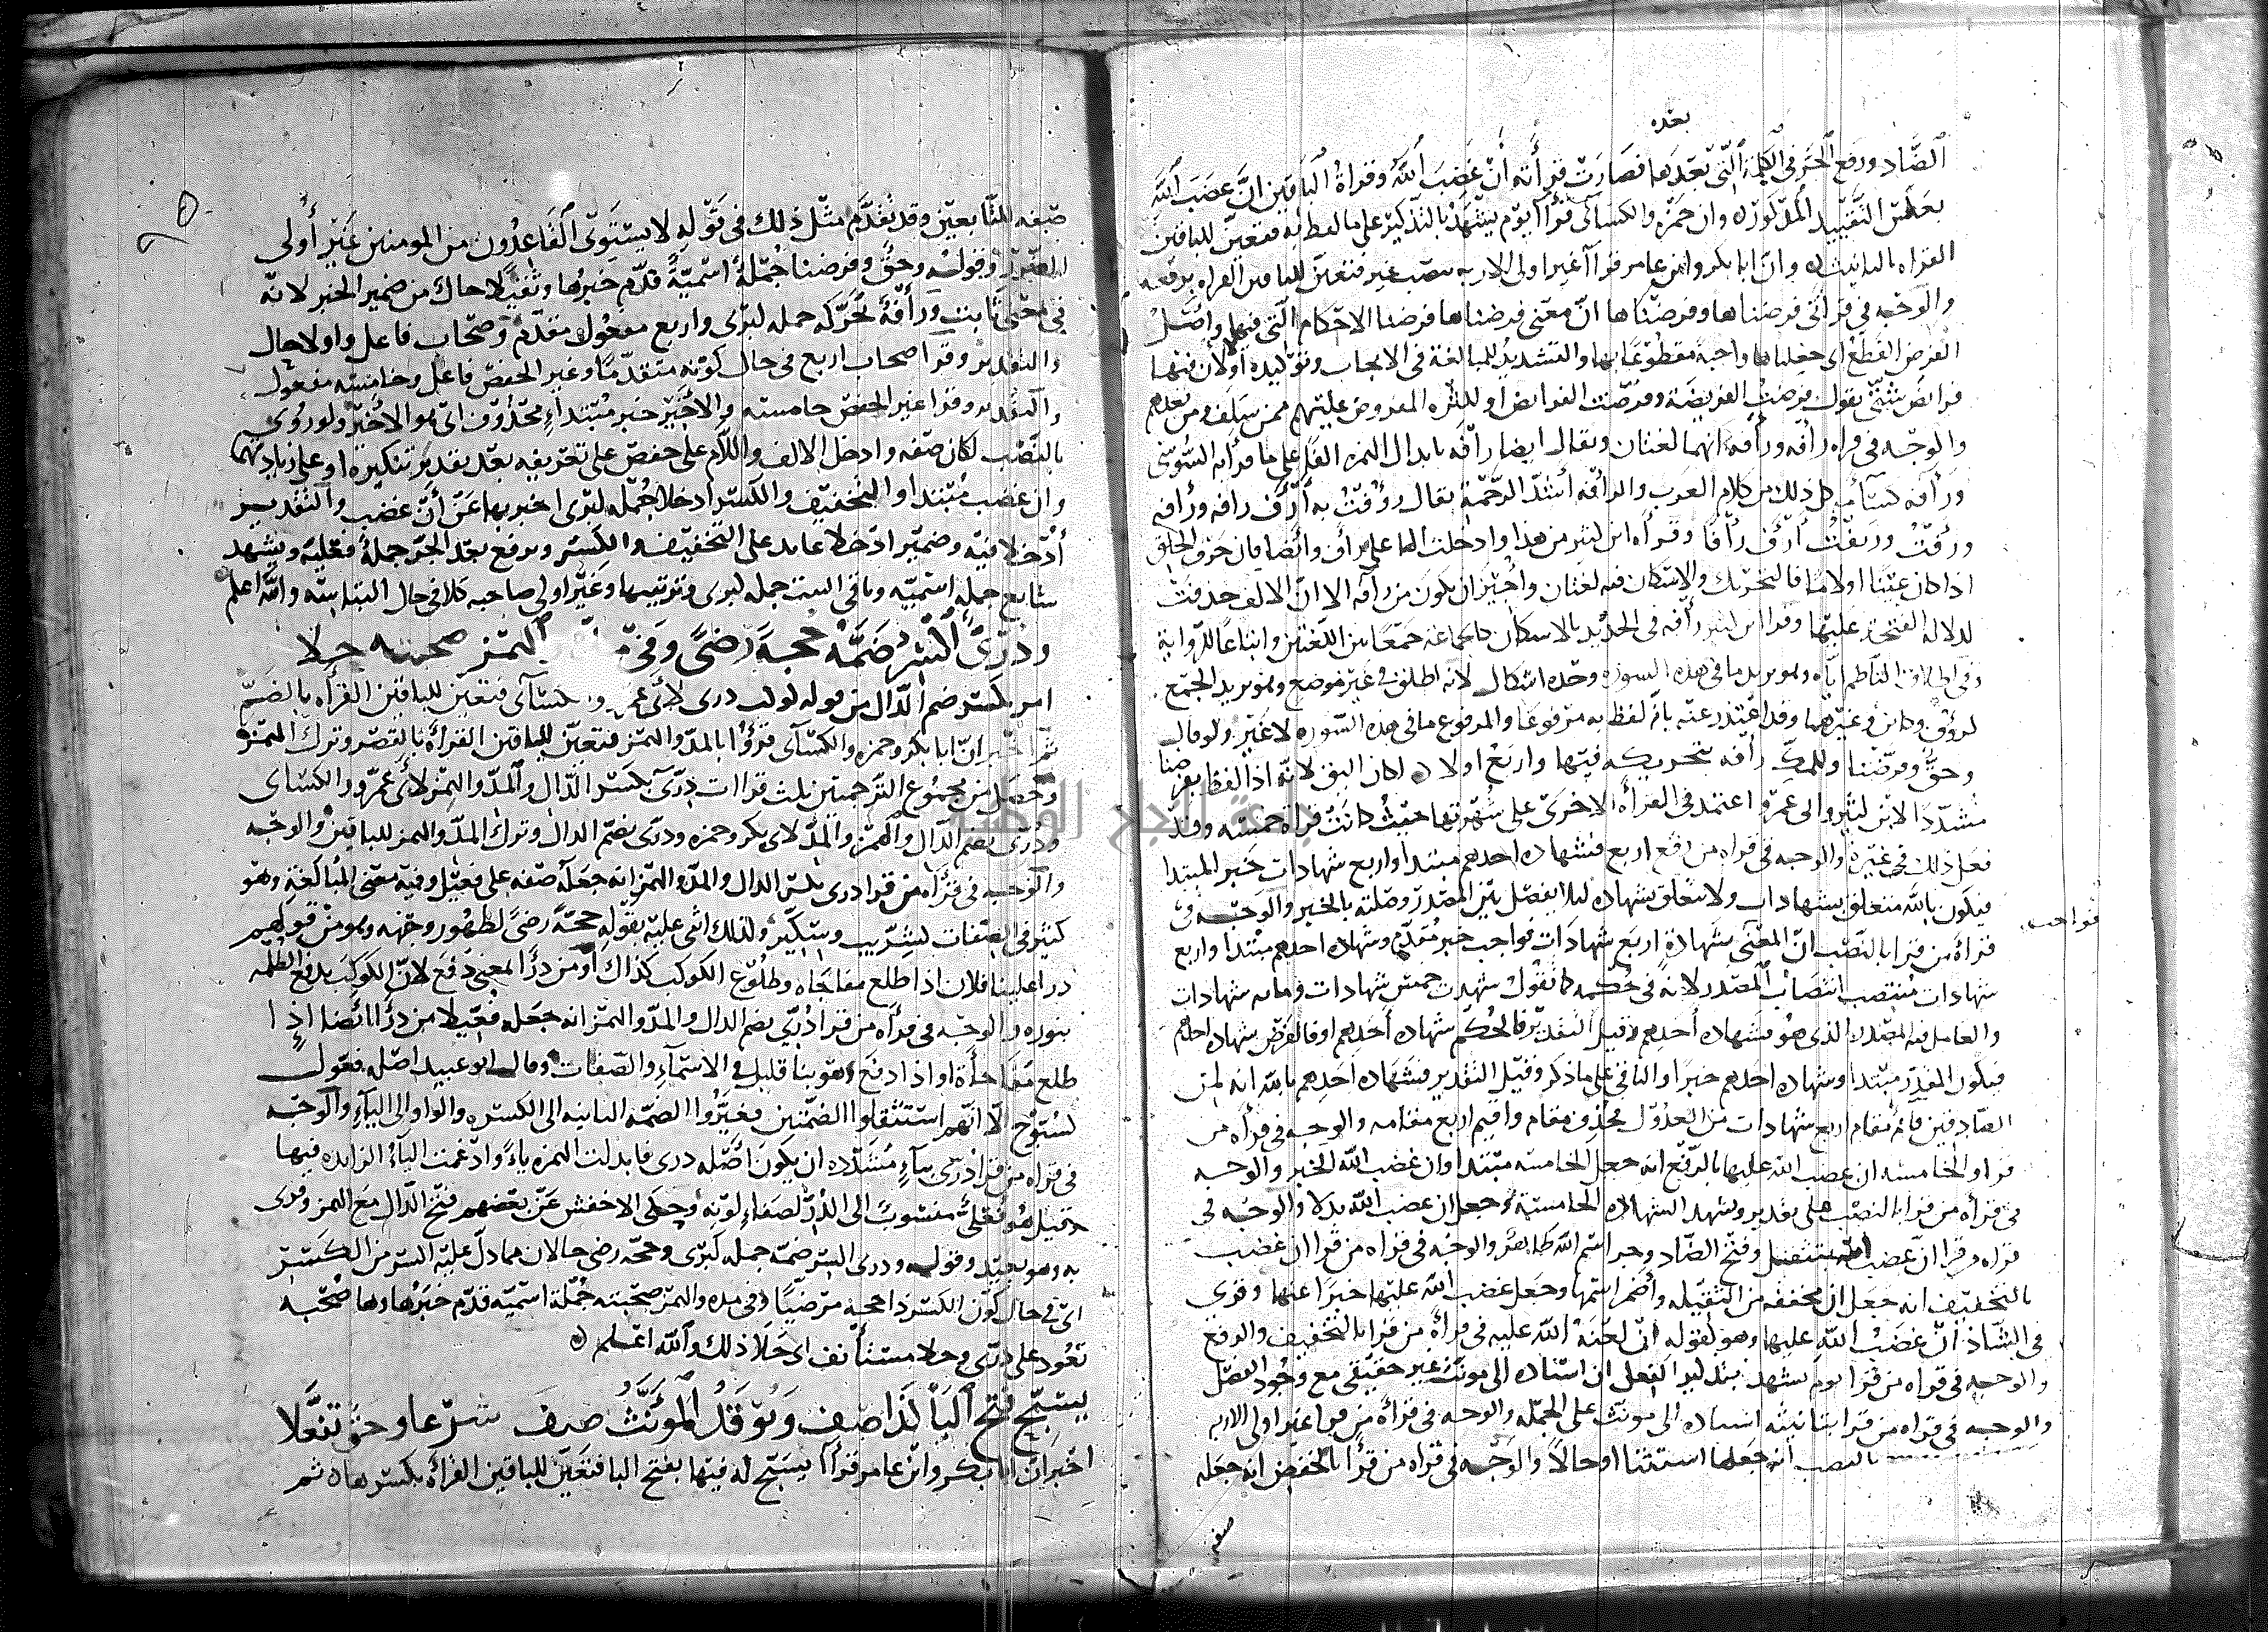 بعده
الصاد ورفع الجر في الكلمة التي بعدها فصارت قراته أن غضب الله وقراة الباقين ان غضب الله
بعكس التقييد المذكورن وان حمزه والكسائي قرأا يوم يشهد بالتذكير على ما لفظ به فتعين للباقين
القراه بالتانيث ن وان ابا بكر وابن عامر قرأا غير اولي الاربه بنصب غير فتعين للباقين القراه برفعه
والوجه في قراتي فرضناها وفرضناها ان معنى فرضناها فرضنا الاحكام التي فيها واصل
الفرض القطع اي جعلناها واجبة مقطوعا بها والتشديد للمبالغة في الايجاب وتوكيده او لان فيها
فرايض شتى تقول فرضت الفريضة وفرضت الفرايض او لكثره المفروض عليهم ممن سلف ومن بعدهم
والوجه في قراه رافه ورأفه انهما لغتان ويقال ايضا رافه بابدال الهمزه الفا على ما قرأ به السوسي
ورآفه كسآمه كل ذلك من كلام العرب والرأفه أشد الرحمة يقال رؤفت به أرؤف رافه ورآفه
ورأفت ورئفت أرأف رأفا وقراه ابن كثير من هذا وادخلت الها على رأف وايضا فان حرف الحلق
اذا كان عينا او لاما فالتحريك والاسكان فيه لغتان واجيز ان يكون من رآفه الا ان الالف حذفت
لدلاله الفتحة عليها وقرا ابن كثير رأفه في الحديد بالاسكان كالجماعة جمعا بين اللغتين واتباعا للرواية
وفي اطلاق الناظم اياه وهو يريد ما في هذه السوره وحده اشكال لانه اطلق في غير موضع وهو يريد الجمع
لرؤف وكاين وغيرهما وقد اعتذر عنه بانه لفظ به مرفوعا والمرفوع ما في هذه السوره لا غير ولو قال
وحق وفرضنا وللمك رافه بتحريكه فيها واربع اولا ن لكان اليق لانه اذا لفظ بفرضنا
مشددا لابن كثير وابي عمرو اعتمد في القراة الاخرى على شهرتها حيث كانت قراة خمسه وقد
فعل ذلك في غيره والوجه في قراه من رفع اربع فشهاده احدهم مبتدا واربع شهادات خبر المبتدا
فيكون بالله متعلق بشهادات ولا يتعلق بشهاده ليلا يفصل بين المصدر وصلته بالخبر والوجه في
قراة من قرا بالنصب ان المعنى شهادة اربع شهادات فواجب خبر مقدم وشهاده احدهم مبتدا واربع
فواجب
شهادات منتصب انتصاب المصدر لانه في حكمه كما تقول شهدت خمس شهادات ومايه شهادات
والعامل فيه المصدر الذي هو شهاده أحدهم وقيل التقدير فالحكم شهاده أحدهم او فالفرض شهاده احدهم
فيكون المقدر مبتدا وشهاده احدهم خبرا والباقي على ما ذكر وقيل التقدير فشهاده احدهم بالله انه لمن
الصادقين قايم مقام اربع شهادات من العدول فحذف مقام واقيم اربع مقامه والوجه في قراه من
قرا والخامسه ان غضب الله عليها بالرفع انه جعل الخامسه مبتدا وان غضب الله الخبر والوجه
في قراه من قرا بالنصب على تقدير ويشهد الشهاده الخامسة وجعل ان غضب الله بدلا والوجه في
قراه من قرا ان غضب الله بتثقيل وفتح الضاد وجر اسم الله والوجه في قراه من قرا ان غضب
بالتخفيف انه جعل ان مخففه من الثقيله وأضمر اسمها وجعل غضب الله عليها خبرا عنها وقري
في الشاذ ان غضب الله عليها وهو كقوله ان لعنة الله عليه في قراة من قرا بالتخفيف والرفع
والوجه في قراه من قرا يوم يشهد بتذكير الفعل ان اسناده الى مونث غير حقيقي مع وجود الفصل
والوجه في قراه من قرا بتانيثه اسناده الى مونث على الجمله والوجه في قراة من قرا غير اولي الاربه
بالنصب انه جعلها استثنا او حالا والوجه في قراه من قرا بالخفض انه جعله
صفه
صفه للتابعين وقد تقدم مثل ذلك في قوله لا يستوي القاعدون من المومنين غير أولي
الضرر وقوله وحق وفرضنا جملة اسمية قدم خبرها وثقيلا حال من ضمير الخبر لانه
في معنى ثابت ورأفة تحركه جمله كبرى واربع مفعول مقدم وصحاب فاعل واولا حال
والتقدير وقرا صحاب اربع في حال كونه متقدما وغير الحفص فاعل وخامسه مفعول
والتقدير وقرا غير الحفص خامسه والاخير خبر مبتداء محذوف اي هو الاخير ولو روي
بالنصب لكان صفه وادخل الالف واللام على حفص على تعريفه بعد تقدير تنكيره او على زيادتهما
وان غضب مبتدا والتخفيف والكسر ادخلا جمله كبرى اخبر بها عن أن غضب والتقدير
أدخلا فيه وضمير ادخلا عايد على التخفيف والكسر ويرفع بعد الجر جملة فعليه ويشهد
شايع جمله اسميه وباقي البيت جمله كبرى وترتيبها وغير اولي صاحبه كلا في حال التباسه والله اعلم
ودري اكسر ضمه حجة رضى وفي الهمز صحبته حلا
امر بكسر ضم الدال من قوله كوكب دري لابي عمرو والكسآئي فتعين للباقين القراه بالضم
ثم اخبر ان ابا بكر وحمزه والكسآي قرؤا بالمد والهمز فتعين للباقين القراة بالقصر وترك الهمز
وحصل من مجموع الترجمتين ثلث قراات دري بكسر الدال والمد والهمز لابي عمرو والكسائي
ودرئ بضم الدال والهمز والمد لابي بكر وحمزه ودري بضم الدال وترك المد والهمز للباقين والوجه
والوجه في قراه من قرا دري بكسر الدال والمد والهمز انه جعله صفه على فعيل وفيه معنى المبالغة وهو
كثير في الصفات كشريب وسكير ولذلك اثنى عليه بقوله حجة رضى لظهور وجهه وهو من قولهم
درا علينا فلان اذا طلع مفاجاه وطلوع الكوكب كذلك او من درأ المعنى دفع لان الكوكب يدفع الظلمه
بنوره والوجه في قرآه من قرا دري بضم الدال والمد والهمز انه جعله فعيلا من درأ ايضا اذا
طلع مفاجأة او اذا دفع وهو بنا قليل في الاسمآء والصفات وقال ابو عبيد اصله فعول
كسبوح الا انهم استثقلوا الضمتين فغيروا الضمه الثانيه الى الكسره والواو الى الياء والوجه
في قراه من قرا دري بياء مشدده ان يكون اصله دري فابدلت الهمزه ياء وادغمت الياء الزايده فيها
وقيل هو فعلي منسوب الى الدر لصفاء لونه وحكى الاخفش عن بعضهم فتح الدال مع الهمز وقرى
به وهو بعيد وقوله ودري اكسر ضمه جمله كبرى وحجه رضى حالان مما دل عليه اكسر من الكسر
اي في حال كون الكسر ذا حجة مرضيا وفي مده والهمز صحبته جملة اسميه قدم خبرها وها صحبه
تعود على دري وحلا مستأنف اي حلا ذلك والله اعلم ن
يسبح فتح البا كذا صف ويوقد المؤنث صف شرعا وحق تفعلا
اخبر ان ابا بكر وابن عامر قرأا يسبح له فيها بفتح البا فتعين للباقين القراة بكسرها ن ثم